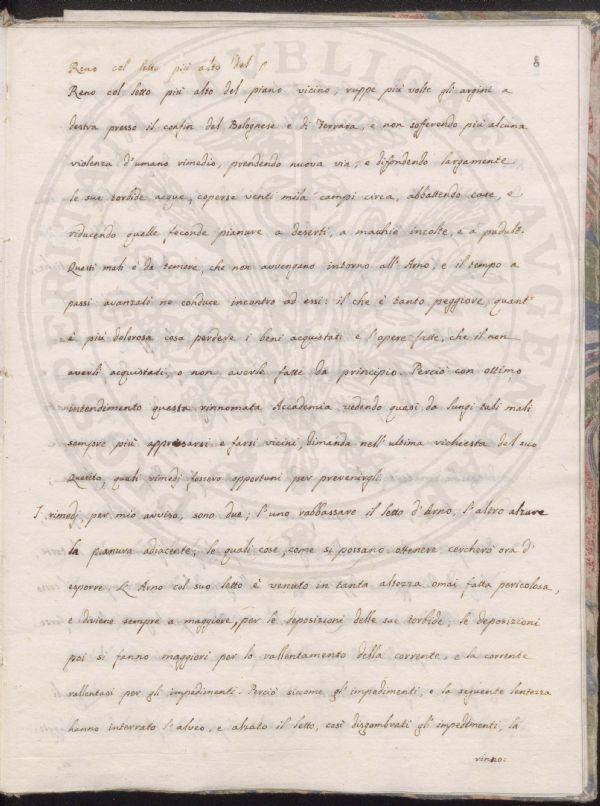 8
Reno col letto più alto del p
Reno col letto più alto del piano vicino, ruppe più volte gli argini a
destra presso il confin del Bolognese e di Ferrara, e non sofferendo più alcuna
violenza d'umano rimedio, prendendo nuova via, e difondendo largamente
le sue torbide acque, coperse venti mila campi circa, abbattendo case, e
riducendo quelle feconde pianure a deserti, a macchie incolte, e a paduli.
Questi mali è da temere, che non avvengano intorno all'Arno, e il tempo a
passi avanzati ne conduce incontro ad essi: il che è tanto peggiore, quant'
è più dolorosa cosa perdere i beni acquistati e l'opere fatte, che il non
averli acquistati, o non averle fatte da principio. Perciò con ottimo
intendimento questa rinnomata Accademia, vedendo quasi da lungi tali mali
sempre più appressarsi e farsi vicini, dimanda nell'ultima richiesta del suo
Quesito, quali rimedi fossero opportuni per prevenirgli.
I rimedj, per mio avviso, sono due; l'uno rabbassare il letto d'Arno, l'altro alzare
la pianura adiacente; le quali cose, come si possano ottenere cercherò ora d'
esporre. L'Arno col suo letto è venuto in tanta altezza omai fatta pericolosa,
e diviene sempre a maggiore, per le deposizioni delle sue torbide; le deposizioni
poi si fanno maggiori per lo rallentamento della corrente, e la corrente
rallentasi per gli impedimenti. Perciò siccome gl'impedimenti, e la seguente lentezza
hanno interrato l'alveo, e alzato il letto, così disgombrati gl'impedimenti, la
vinno: